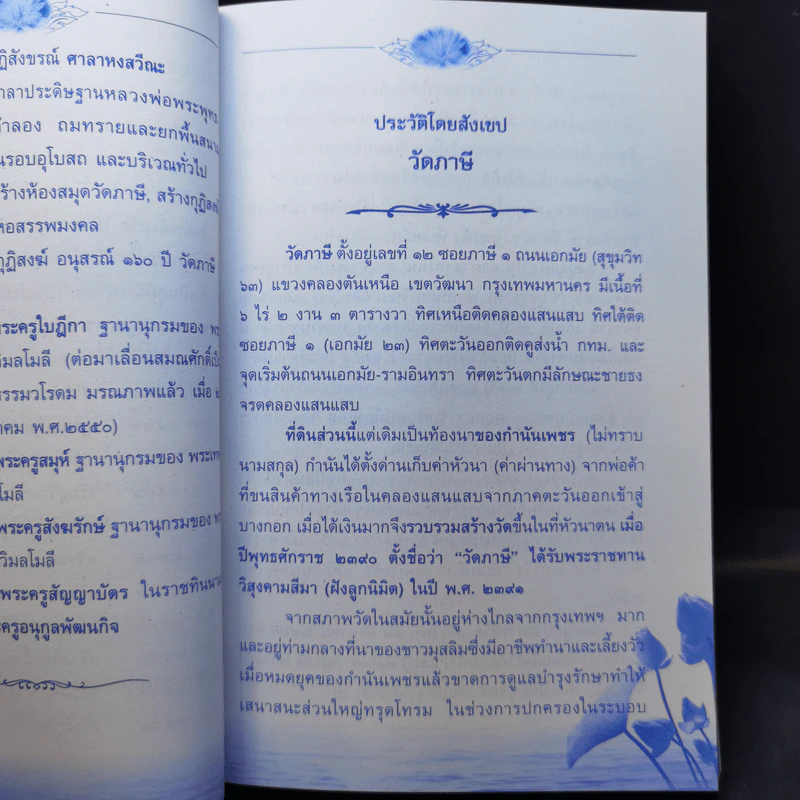 ฏิสังขรณ์ ศาลาหงสวีณะ
าลาประดิษฐานหลวงพ่อพระพุทธ
ำลอง ถมทรายและยกพื้นสนาม
นรอบอุโบสถ และบริเวณทั่วไป
ร้างห้องสมุดวัดภาษี, สร้างกุฏิสงฆ์
หอสรรพมงคล
กุฏิสงฆ์ อนุสรณ์ ๑๖๐ ปี วัดภาษี
พระครูใบฎีกา ฐานานุกรมของ พร
วิมลโมลี (ต่อมาเลื่อนสมณศักดิ์เป็
ธรรมวโรดม มรณภาพแล้ว เมื่อ ๒
าคม พ.ศ.๒๕๕๐)
พระครูสมุห์ ฐานานุกรมของ พระเทพ
โมลี
พระครูสังฆรักษ์ ฐานานุกรมของ พร
วิมลโมลี
พระครูสัญญาบัตร ในราชทินนาม
ะครูอนุกูลพัฒนกิจ
ประวัติโดยสังเขป
วัดภาษี
วัดภาษี ตั้งอยู่เลขที่ ๑๒ ซอยภาษี ๑ ถนนเอกมัย (สุขุมวิท
๖๓) แขวงคลองตันเหนือ เขตวัฒนา กรุงเทพมหานคร มีเนื้อที่
๖ ไร่ ๒ งาน ๓ ตารางวา ทิศเหนือติดคลองแสนแสบ ทิศใต้ติด
ซอยภาษี ๑ (เอกมัย ๒๓) ทิศตะวันออกติดคูส่งน้ำ กทม. และ
จุดเริ่มต้นถนนเอกมัย-รามอินทรา ทิศตะวันตกมีลักษณะชายธง
จรดคลองแสนแสบ
ที่ดินส่วนนี้แต่เดิมเป็นท้องนาของกำนันเพชร (ไม่ทราบ
นามสกุล) กำนันได้ตั้งด่านเก็บค่าหัวนา (ค่าผ่านทาง) จากพ่อค้า
ที่ขนสินค้าทางเรือในคลองแสนแสบจากภาคตะวันออกเข้าสู่
บางกอก เมื่อได้เงินมากจึงรวบรวมสร้างวัดขึ้นในที่หัวนาตน เมื่อ
ปีพุทธศักราช ๒๓๙๐ ตั้งชื่อว่า “วัดภาษี” ได้รับพระราชทาน
วิสุงคามสีมา (ฝังลูกนิมิต) ในปี พ.ศ. ๒๓๙๑
จากสภาพวัดในสมัยนั้นอยู่ห่างไกลจากกรุงเทพฯ มาก
และอยู่ท่ามกลางที่นาของชาวมุสลิมซึ่งมีอาชีพทำนาและเลี้ยงวัว
เมื่อหมดยุคของกำนันเพชรแล้วขาดการดูแลบำรุงรักษาทำให้
เสนาสนะส่วนใหญ่ทรุดโทรม ในช่วงการปกครองในระบอบ